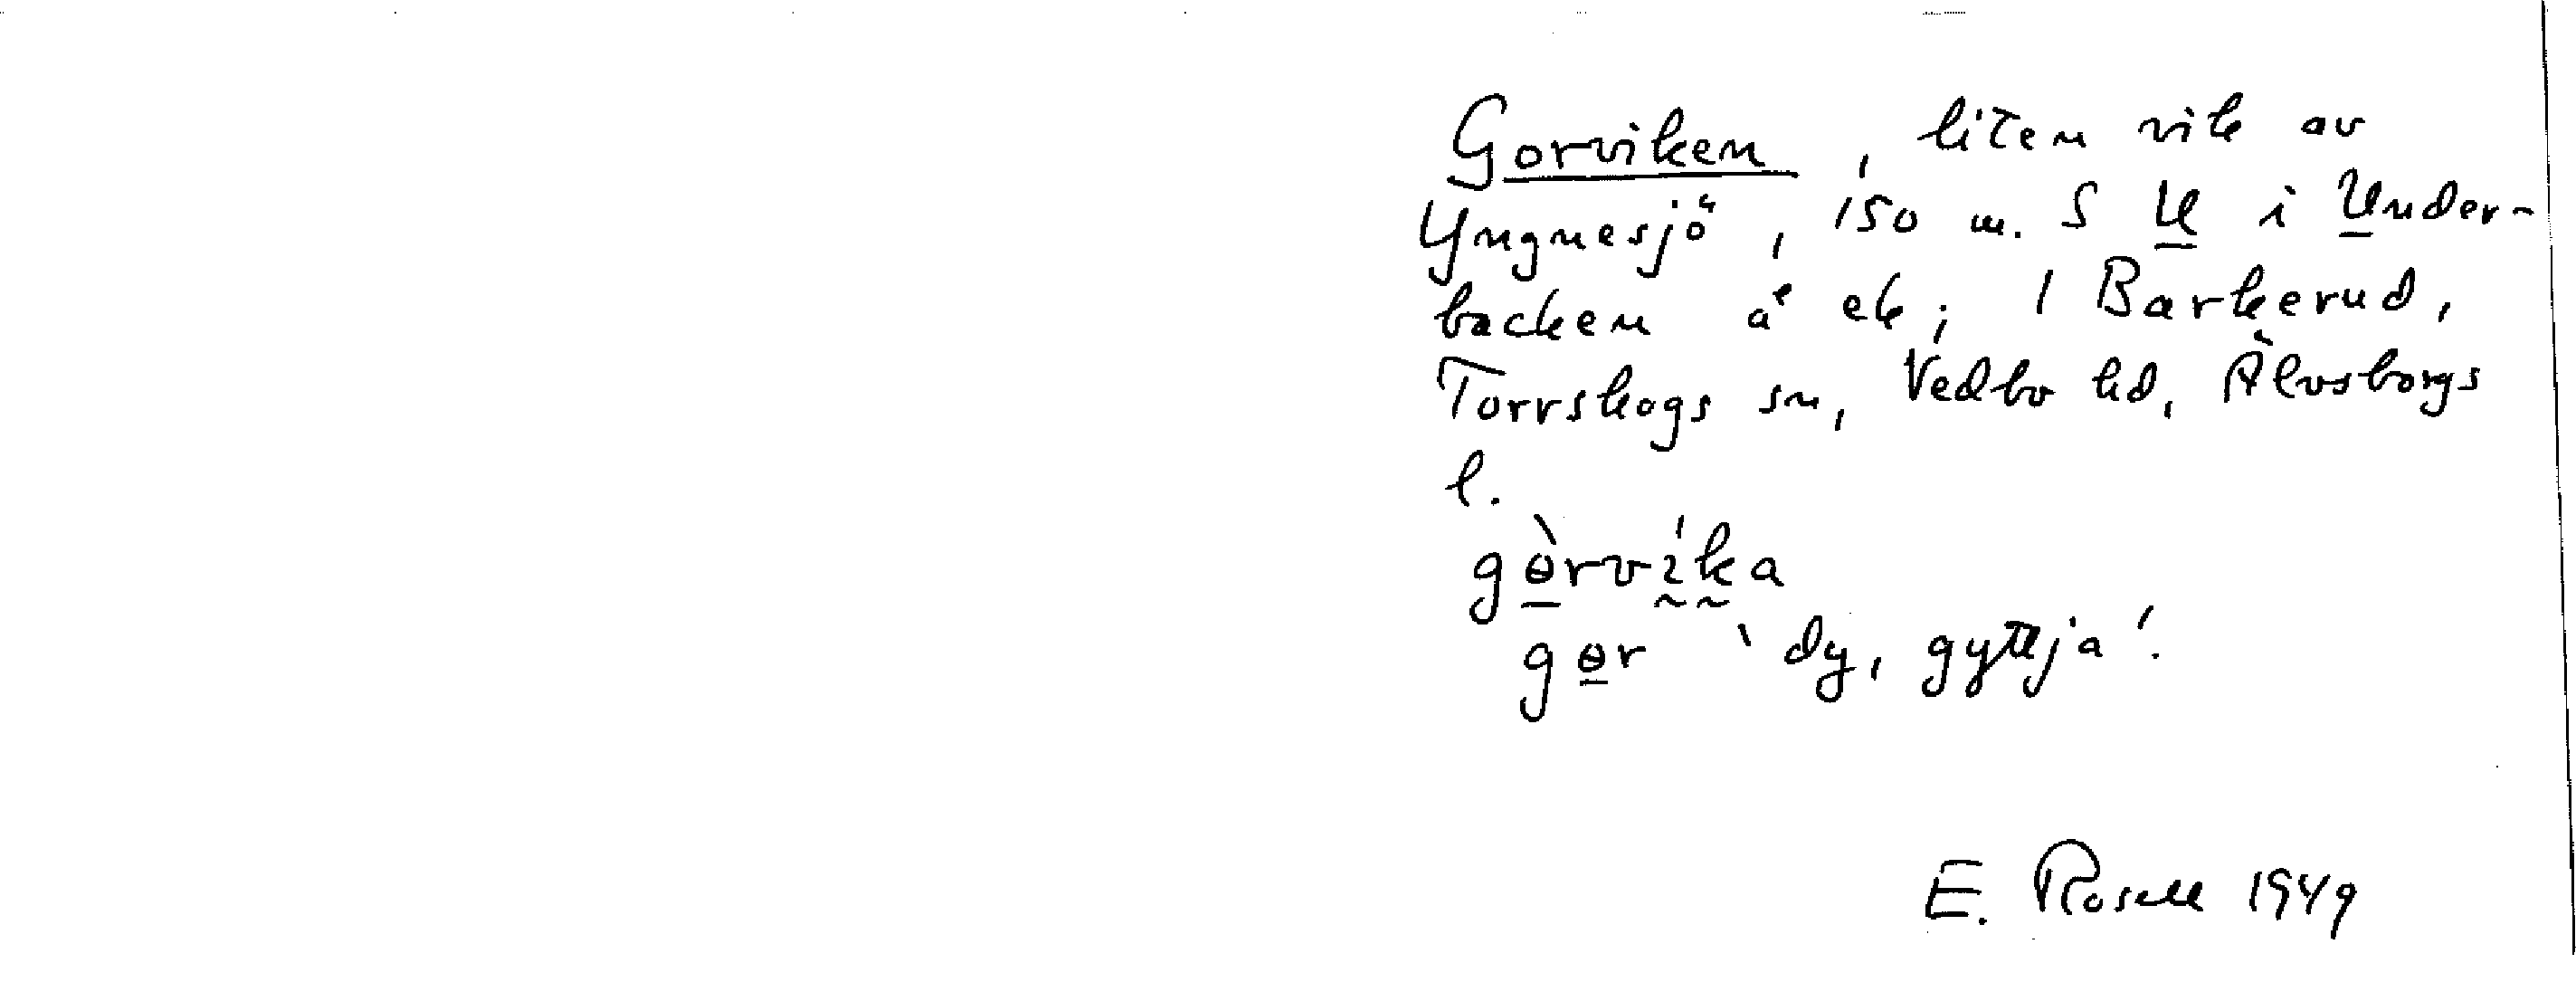 Gorviken, liten vik av
Yngnesjö, 150 m. S U i Under-
backen å ek; 1 Barkerud,
Torrskogs sn, Vedbo hd, Älvsborgs
l.
gɵ̀rvíka
gɵr 'dy, gyttja'.
E. Rosell 1949